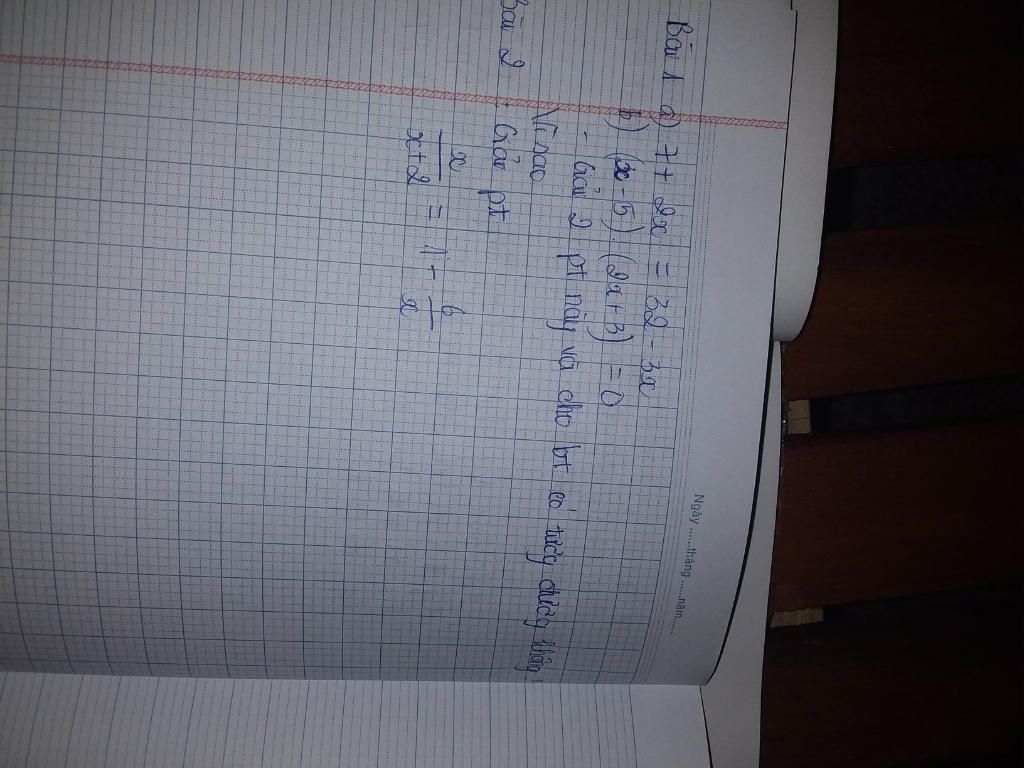 Ngày.....tháng.....năm......
Bài 1 a) 7+ 2x = 32 - 3x
b) (x-5).(2x+3) = 0
- Giải 2 pt này và cho bt có tương đương không
Vì sao
Bài 2 : Giải pt
x/x+2 = 1 - 6/x